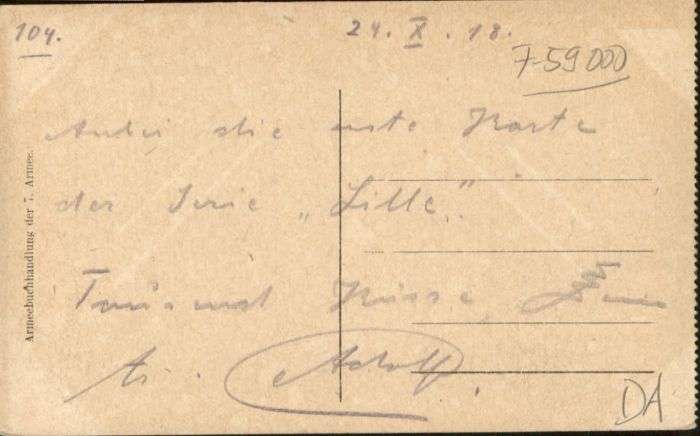 104.
24. X. 18.
7-59000
die erste Karte
der Serie „Lille".
Tausend Küsse
Adolf.
Armeebuchhandlung der 7. Armee.
DA